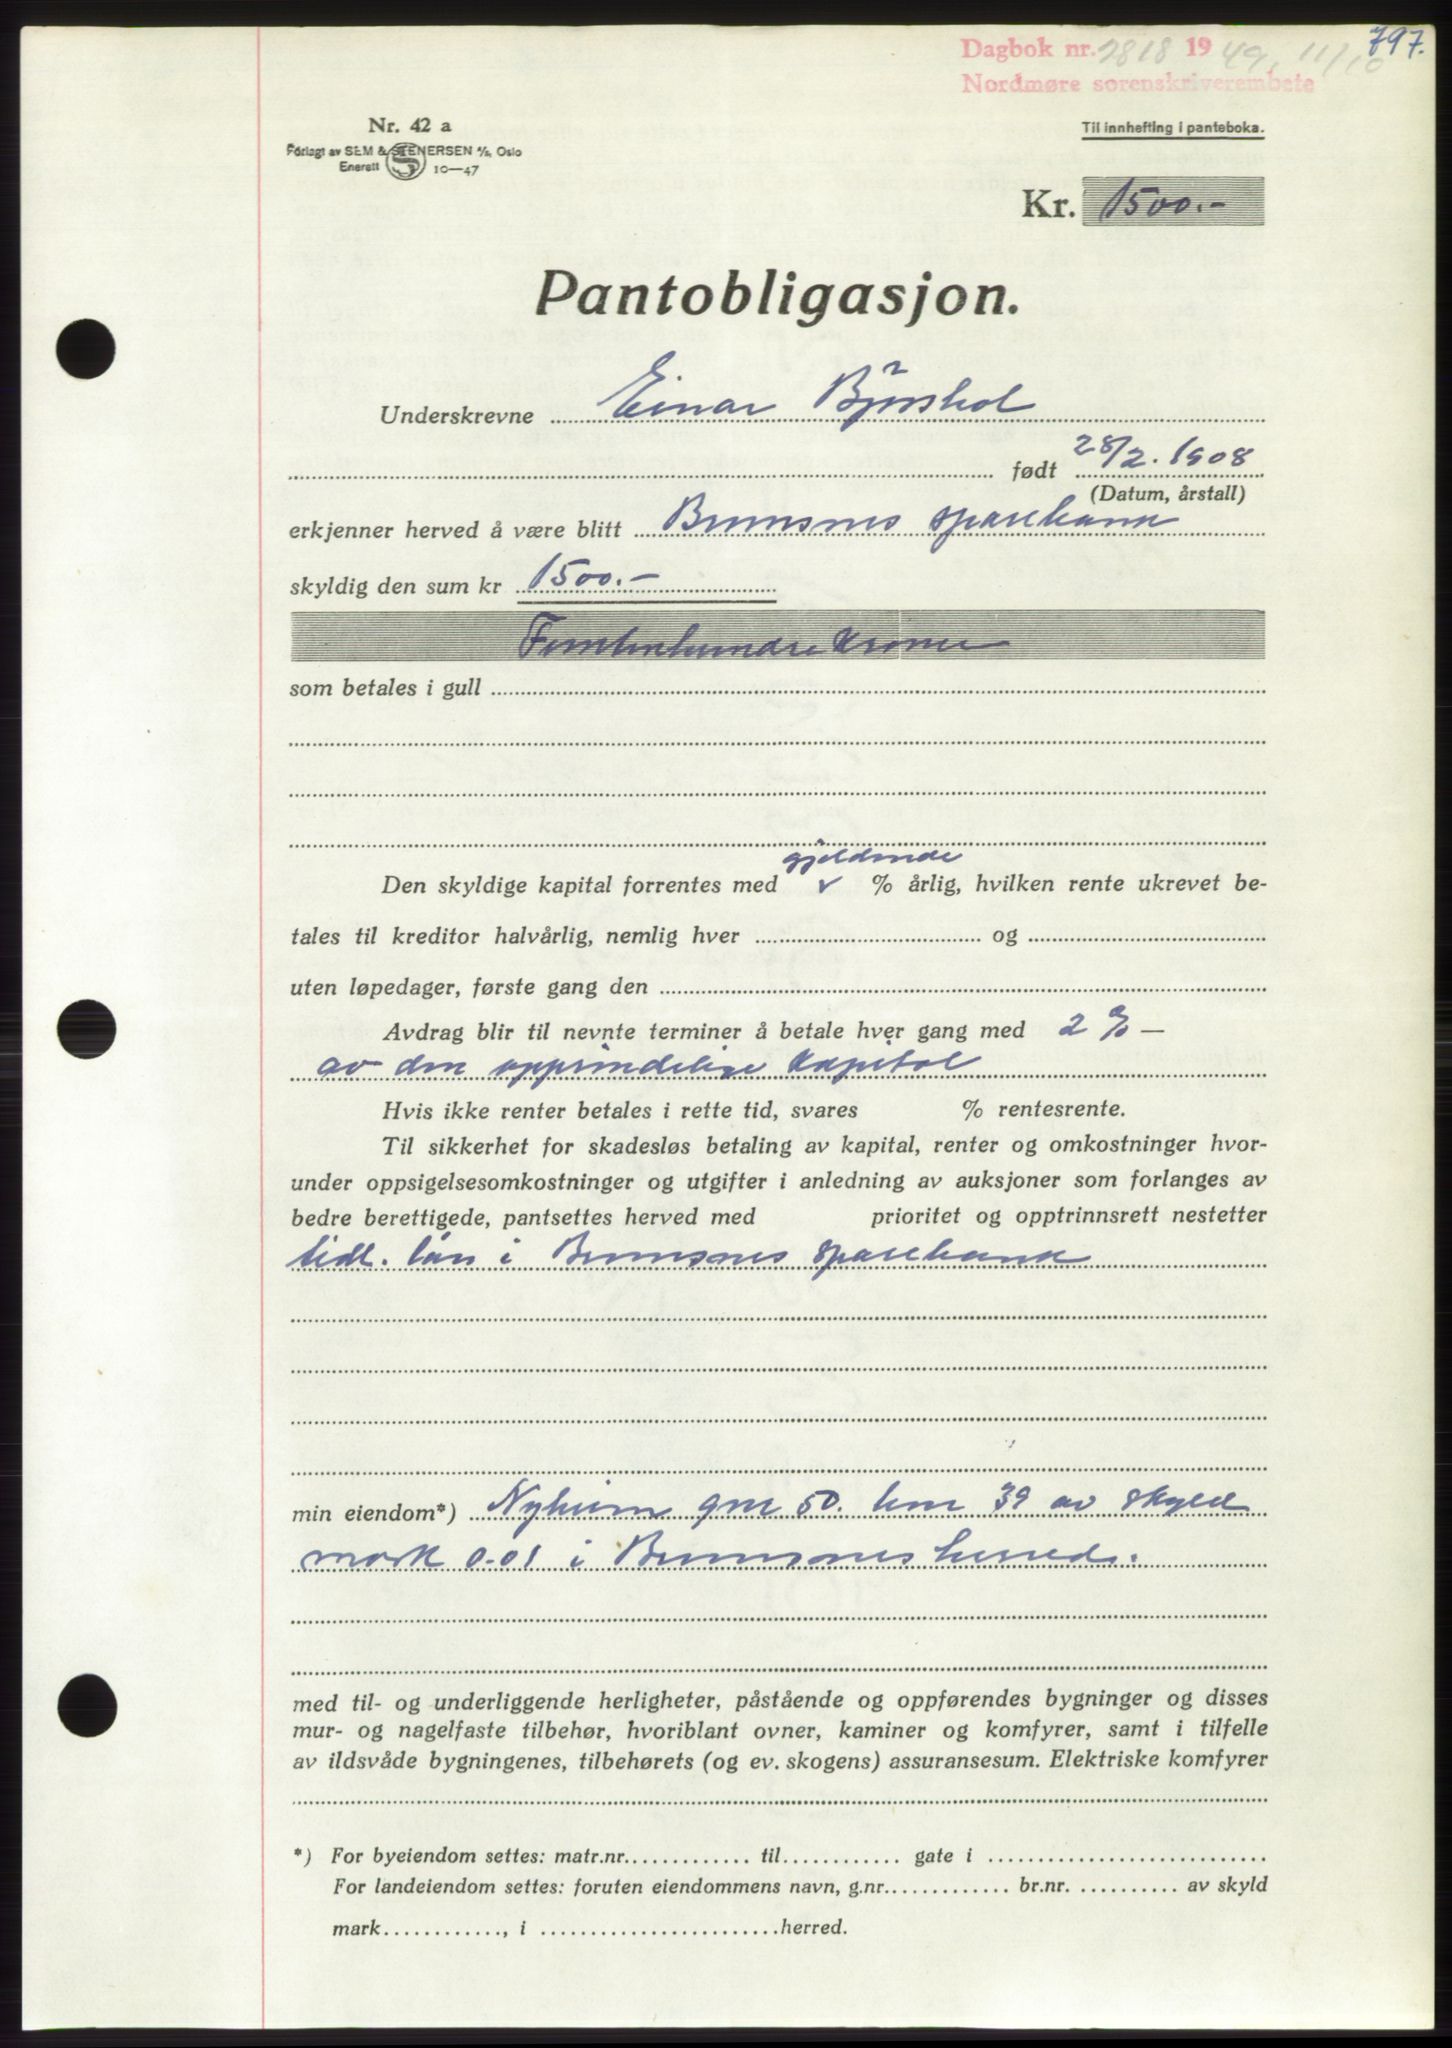 797.
Dagbok nr. 2818 1949, 11/10
Nordmøre sorenskriverembete
Nr. 42 a
Til innhefting i panteboka.
Forlagt av SEM & STENERSEN A/S, Oslo
Enerett 10—47
Kr. 1500.-
Pantobligasjon.
Underskrevne Einar Bjørshol
født 28/2. 1908
(Datum, årstall)
erkjenner herved å være blitt Bremsnes sparebank
skyldig den sum kr 1500.-
Femtenhundre kroner
som betales i gull
gjeldende
Den skyldige kapital forrentes med % årlig, hvilken rente ukrevet be-
tales til kreditor halvårlig, nemlig hver og
uten løpedager, første gang den
Avdrag blir til nevnte terminer å betale hver gang med 2 % —
av den opprindelige kapital
Hvis ikke renter betales i rette tid, svares % rentesrente.
Til sikkerhet for skadesløs betaling av kapital, renter og omkostninger hvor-
under oppsigelsesomkostninger og utgifter i anledning av auksjoner som forlanges av
bedre berettigede, pantsettes herved med prioritet og opptrinnsrett nestetter
tidl. lån i Bremsnes sparebank
min eiendom*) Nyheim gnr 50. bnr 39 av skyld
mark 0-01 i Bremsnes herred.
med til- og underliggende herligheter, påstående og oppførendes bygninger og disses
mur- og nagelfaste tilbehør, hvoriblant ovner, kaminer og komfyrer, samt i tilfelle
av ildsvåde bygningenes, tilbehørets (og ev. skogens) assuransesum. Elektriske komfyrer
*) For byeiendom settes: matr.nr.............. til............ gate i ............................
For landeiendom settes: foruten eiendommens navn, g.nr............. br.nr. .......... av skyld
mark............, i ........................herred.